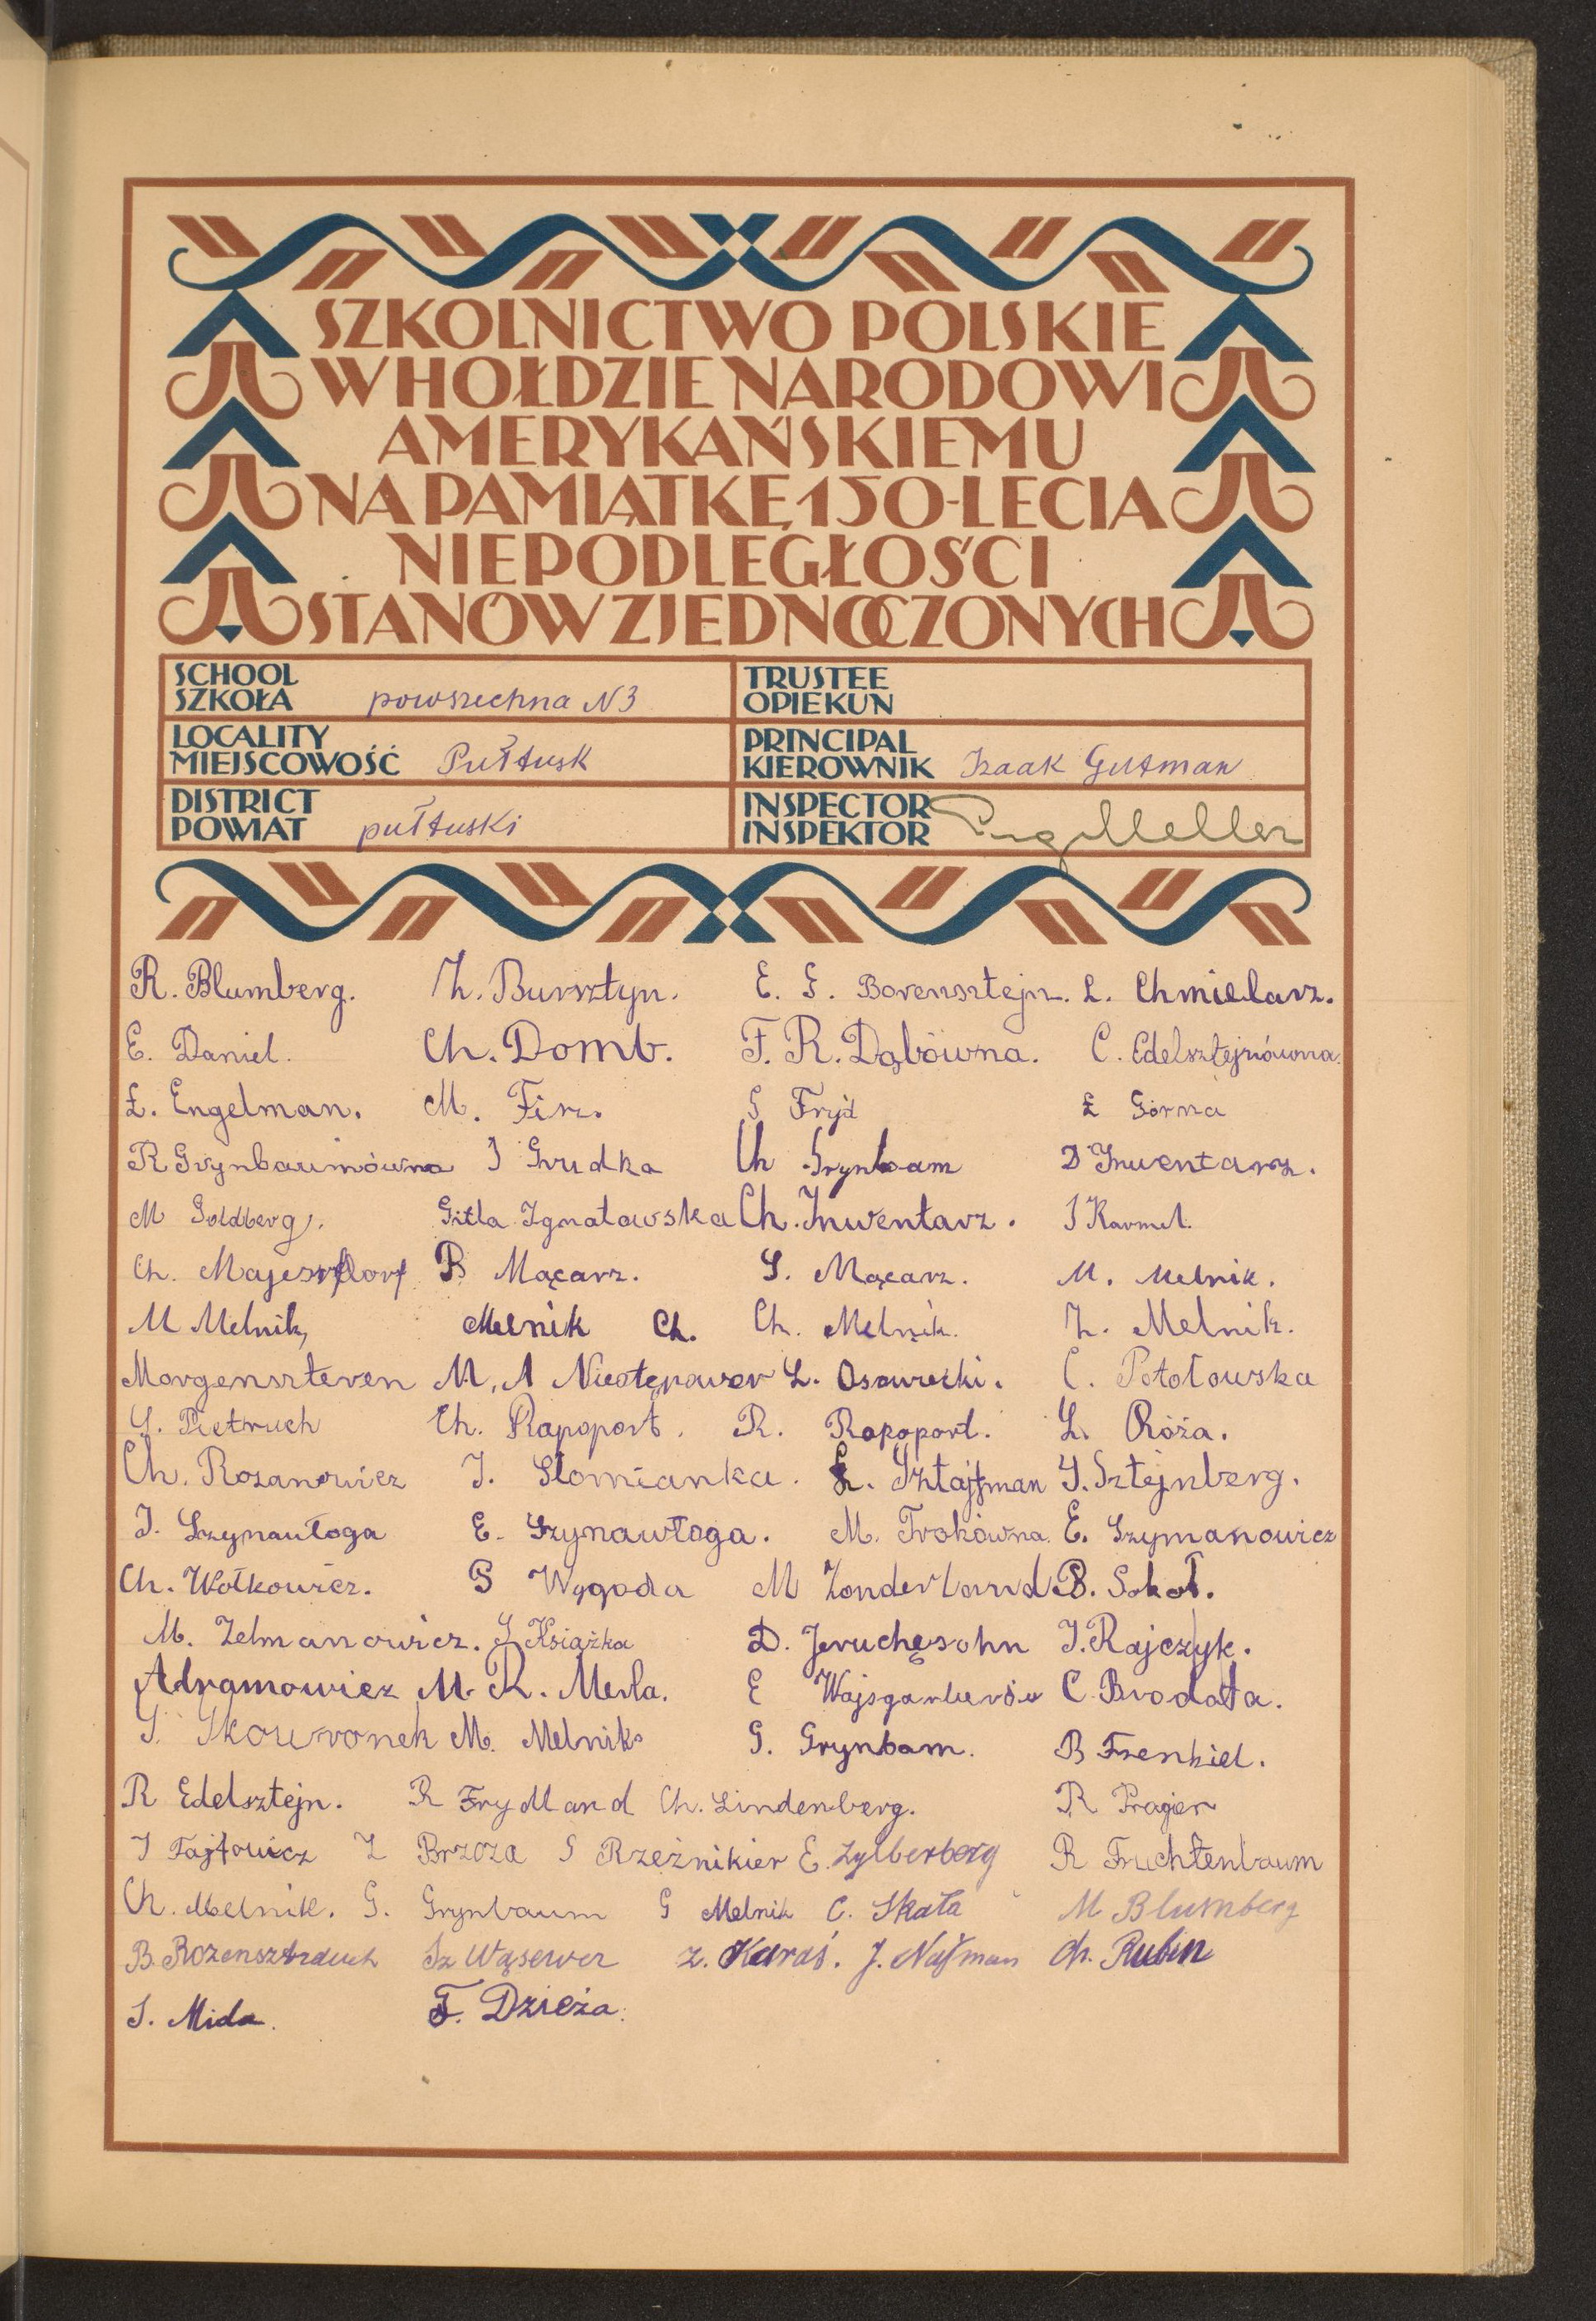 SZKOLNICTWO POLSKIE
W HOŁDZIE NARODOWI
AMERYKAŃSKIEMU
NA PAMIĄTKĘ 150-LECIA
NIEPODLEGŁOŚCI
STANÓW ZJEDNOCZONYCH
SCHOOL
SZKOŁA powszechna N3
TRUSTEE
OPIEKUN
LOCALITY
MIEJSCOWOŚĆ Pułtusk
PRINCIPAL
KIEROWNIK Izaak Gutman
DISTRICT
POWIAT pułtuski
INSPECTOR
INSPEKTOR
R. Blumberg. Z. Bursztyn. E. S. Borensztejn. L. Chmielarz.
E. Daniel. Ch. Domb. F. R. Dąbówna. C. Edelsztejnówna.
Ł. Engelman. M. Fisz. S Fryd Ł Górna
R Grynbaumówna I Grudka Ch Grynbam D Inwentarz.
M Goldberg. Gitla Ignatowska Ch. Inwentarz. I Karmel.
Ch. B Mącarz. S. Mącarz. M. Melnik.
M Melnik, Melnik Ch. Ch. Melnik. Z. Melnik.
Morgenszteren M. A L. Osowiecki. C. Potołowska
S. Pietruch Ch. Rapoport. R. Rapoport. L. Róża.
Ch. Rozanowicz I. Słomianka. L. Sztajfman S. Sztejnberg.
I. Szynawłoga E. Szynawłoga. M. Trokówna. E. Szymanowicz
Ch. Wołkowicz. G Wygoda M Zonderland B. Sokoł.
M. Zelmanowicz. S Książka D. Jeruchęsohn I. Rajczyk.
Adramowicz M. R. Merla. E C. Brodata.
S. Skowronek M. Melnik G. Grynbam. B Frenkiel.
R Edelsztejn. R Frydland Ch. Lindenberg. R Prager
I Fajfowicz Z Brzoza S Rzeźnikier E. Zylberberg R Fruchtenbaum
Ch. Melnik. G. Grynbaum G Melnik C. Skała M Blumberg
B. Sz Wąserver Z. Karaś. J. Najman Ch. Rubin
S. Mida. F. Dzieża.